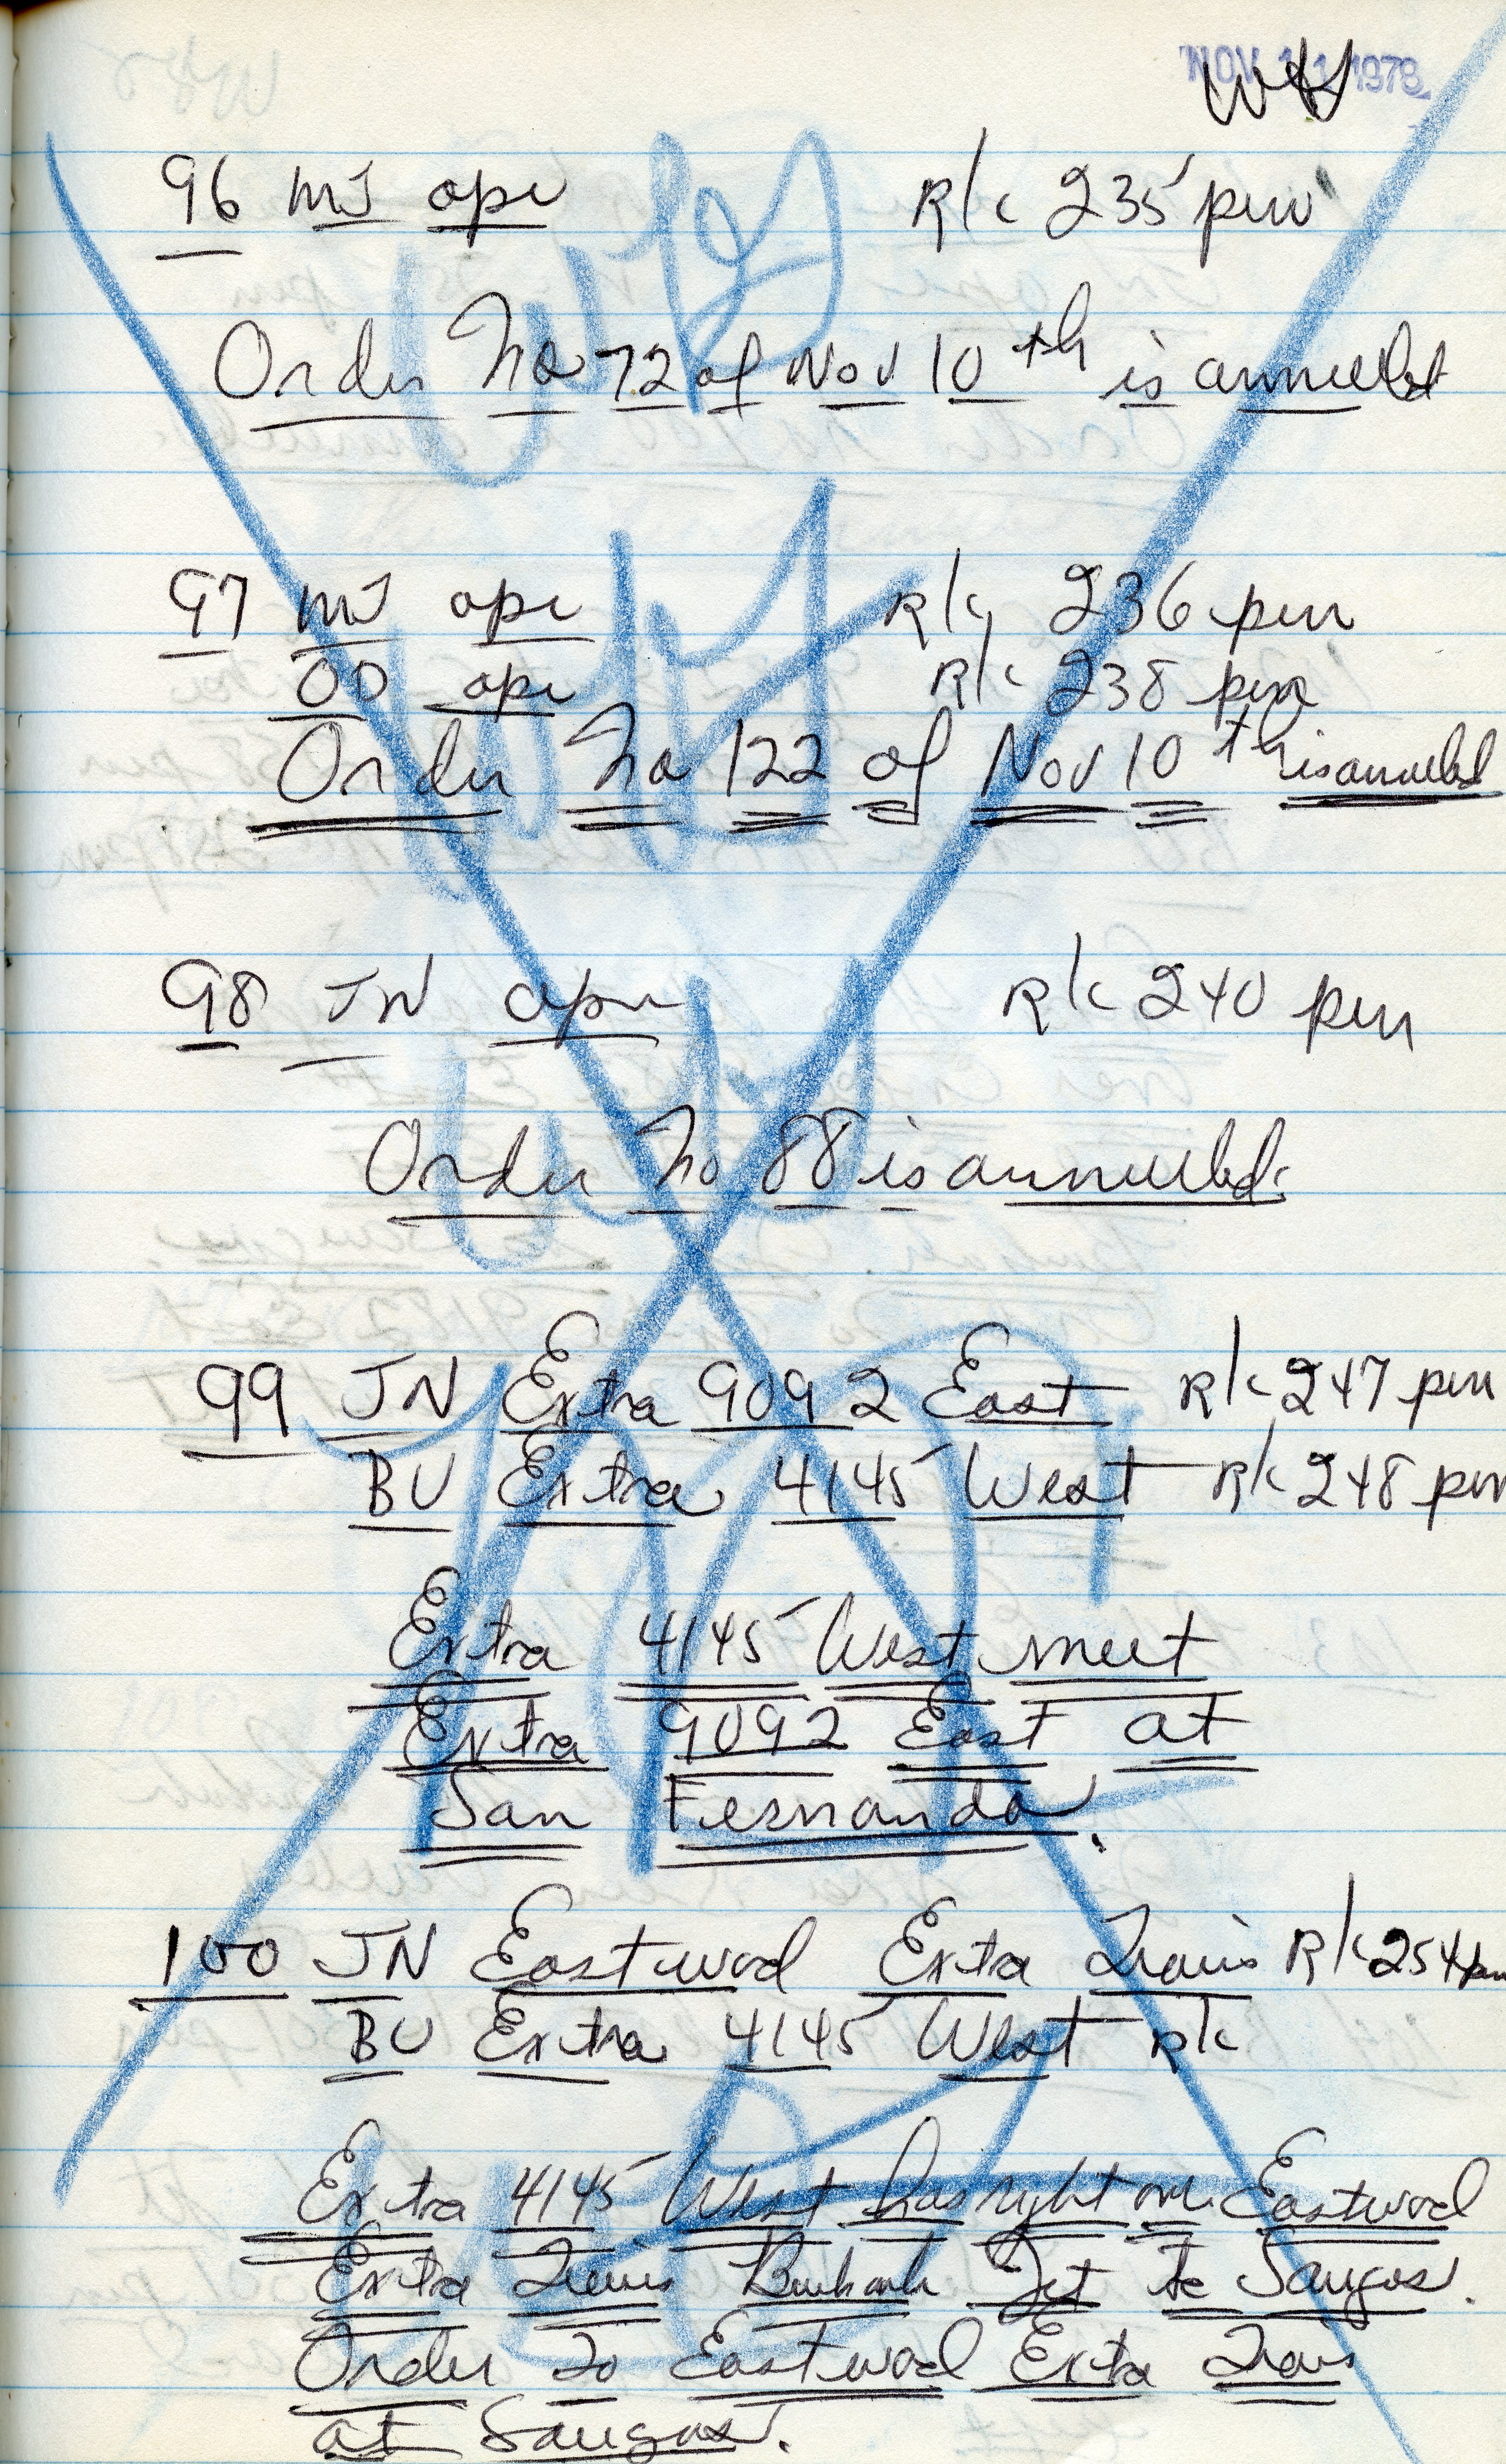 NOV 11 1978
96 MJ opr R/c 235 pm
Order No 72 of Nov 10th is annulled
97 MJ opr R/c 236 pm
OD opr R/c 238 pm
Order No 122 of Nov 10th is annulled
98 JN opr R/c 240 pm
Order No 88 is annulled.
99 JN Extra 9092 East R/c 247 pm
BU Extra 4145 West R/c 248 pm
Extra 4145 West meet
Extra 9092 East at
San Fernando.
100 JN Eastward Extra Trains R/c 254 pm
BU Extra 4145 West R/c
Extra 4145 West has right over Eastward
Extra Trains Burbank Jct to Saugus.
Order to Eastward Extra Trains
at Saugus.